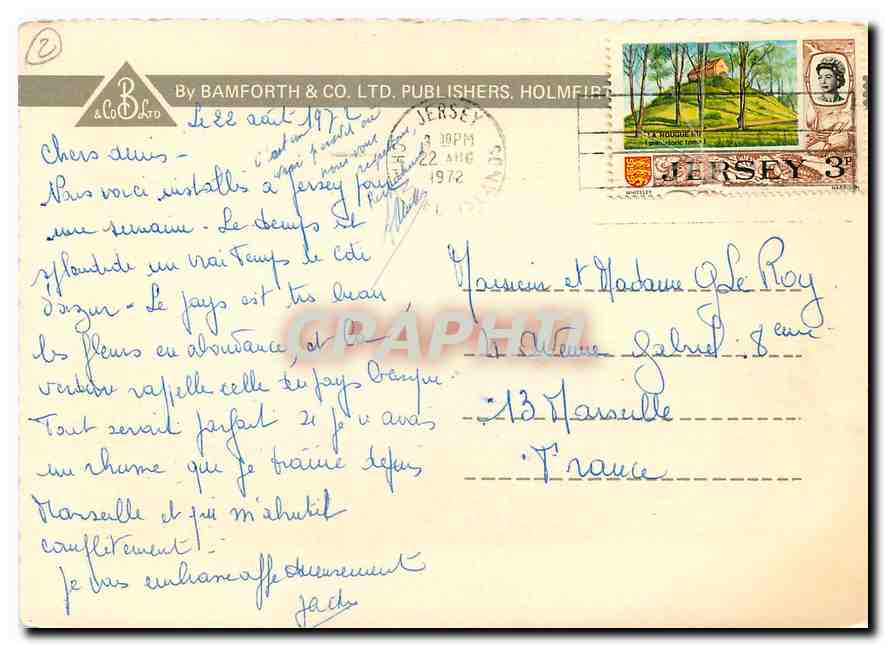 2
B
& Co LTD
By BAMFORTH & CO. LTD. PUBLISHERS. HOLMFIRT
Le 22 août 1972
Chers amis -
Nous voici installés à Jersey pour
une semaine - Le temps est
splendide un vrai temps de Côte
d'azur - Le pays est très beau
les fleurs en abondance, et la
verdure rappelle celle du pays basque.
Tout serait parfait si je n'avais
un rhume que je traine depuis
Marseille et qui m'abrutit
complètement.
Je vous embrasse affectueusement
Jacky
c'est un
vrai paradis où
nous vous
JERSEY
PM
22 AUG
1972
LA HOUGUE BIE
(prehistoric tomb)
JERSEY 3P
WHITELEY
HARRISON
Monsieur et Madame G Le Roy
Avenue Gabriel 8eme
13 Marseille
France
CPAPHIL